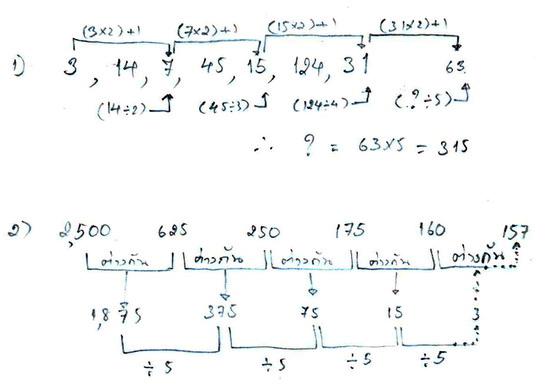 (3×2)+1 (7×2)+1 (15×2)+1 (31×2)+1
1) 3, 14, 7, 45, 15, 124, 31 63
(14÷2) (45÷3) (124÷4) (?÷5)
∴ ? = 63×5 = 315
2) 2,500 625 250 175 160 157
ต่างกัน ต่างกัน ต่างกัน ต่างกัน ต่างกัน
1,875 375 75 15 3
÷5 ÷5 ÷5 ÷5